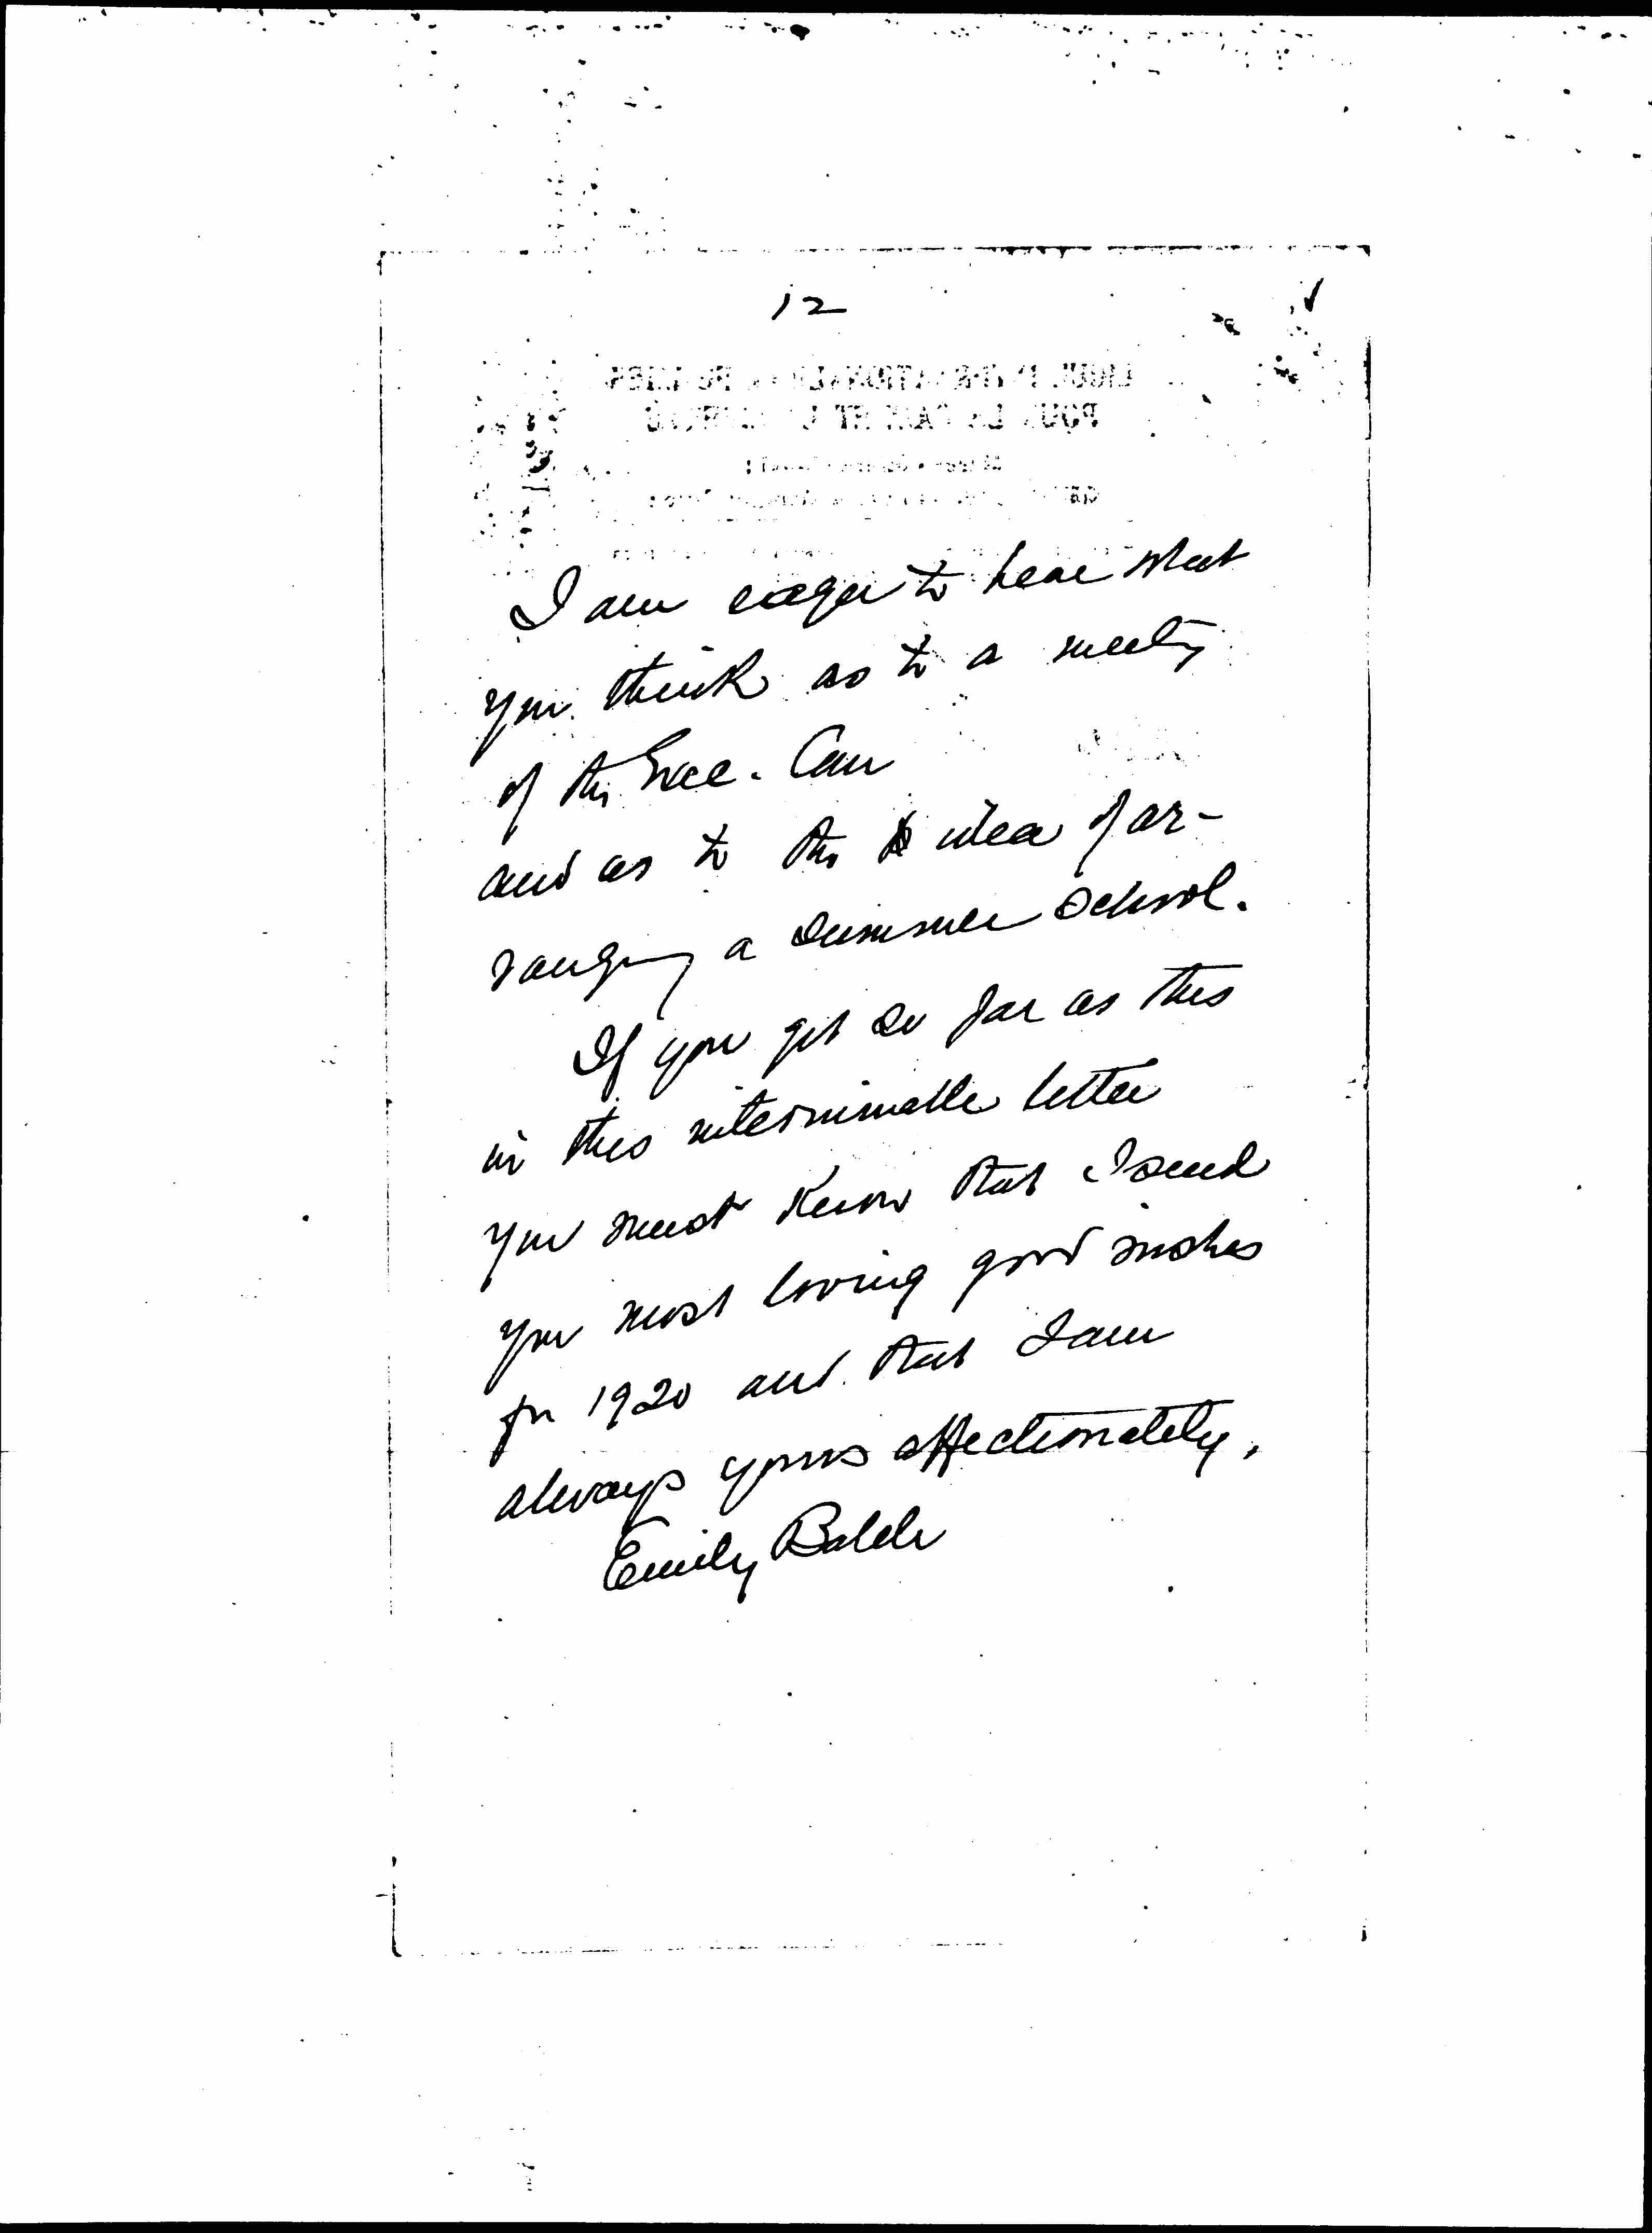 12
I am eager to hear what
you think as to a meeting
of the Exec. Com
and as to the idea of ar-
ranging a summer school.
If you get so far as this
in this interminable letter
you must know that I send
you most loving good wishes
for 1920 and that I am
always yours affectionately,
Emily Balch